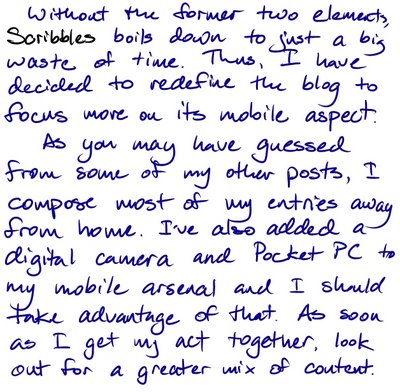 Without the former two elements,
Scribbles boils down to just a big
waste of time. Thus, I have
decided to redefine the blog to
focus more on its mobile aspect.
As you may have guessed
from some of my other posts, I
compose most of my entries away
from home. I've also added a
digital camera and Pocket PC to
my mobile arsenal and I should
take advantage of that. As soon
as I get my act together, look
out for a greater mix of content.